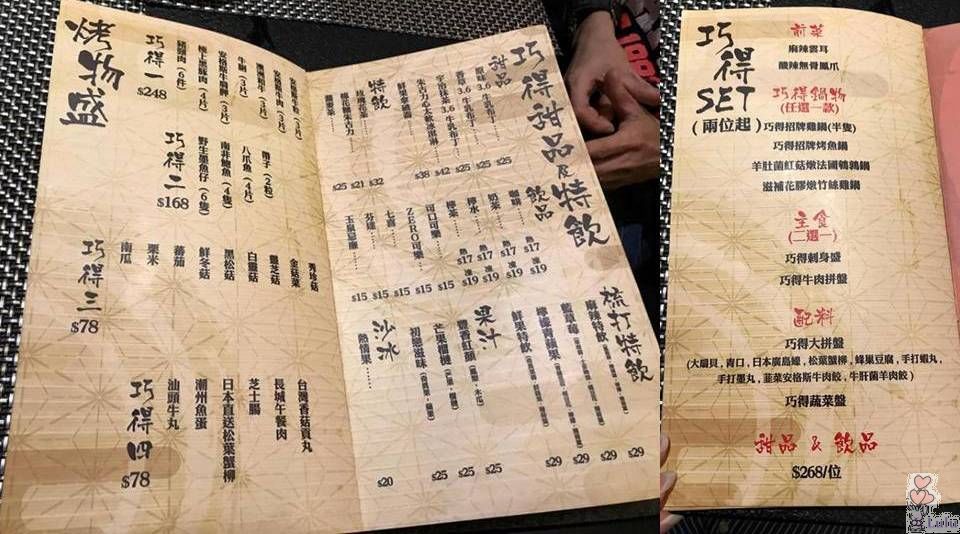 烤物盛
巧得一
$248
豬頸肉 (6件)
極上黑豚肉 (4片)
安格斯牛肩胛 (3片)
澳洲和牛 (3片)
牛胸 (3片)
巧得二
$168
野生墨魚仔 (6隻)
南非鮑魚 (4隻)
八爪魚 (4片)
帶子 (2粒)
巧得三
$78
南瓜
粟米
蕃茄
鮮冬菇
黑松菇
白靈菇
靈芝菇
金菇菜
秀珍菇
巧得四
$78
汕頭牛丸
潮州魚蛋
日本直送松葉蟹柳
芝士腸
長城午餐肉
台灣香菇貢丸
巧得甜品及特飲
甜品
原味3.6牛乳布丁 $25
香芋3.6牛乳布丁 $25
宇治抹茶3.6牛乳布丁 $25
朱古力心太軟冰淇淋 $42
$38
特飲
玫瑰花茶 $32
$21
$25
飲品
咖啡 熱$17 凍$19
奶茶 熱$17 凍$19
檸水 熱$17 凍$19
檸茶 熱$17 凍$19
可口可樂 $15
ZERO可樂 $15
七喜 $15
芬達 $15
玉泉忌廉 $15
梳打特飲
麻辣特飲 $29
藍草莓 $29
檸檬青蘋果 $29
鮮果特飲 $29
果汁
豐香紅顏 $25
芒果榴槤 $25
初戀滋味 $25
沙冰
熱情果 $20
巧得
SET
(兩位起)
前菜
麻辣雲耳
酸辣無骨鳳爪
巧得鍋物
(任選一款)
巧得招牌雞鍋(半隻)
巧得招牌烤魚鍋
羊肚菌紅菇燉法國鵪鶉鍋
滋補花膠燉竹絲雞鍋
主食
(二選一)
巧得刺身盛
巧得牛肉拼盤
配料
巧得大拼盤
(大扇貝,青口,日本廣島蠔,松葉蟹柳,蜂巢豆腐,手打蝦丸,
手打墨丸,韮菜安格斯牛肉餃,牛肝菌羊肉餃)
巧得蔬菜盤
甜品 & 飲品
$268/位
Lulu